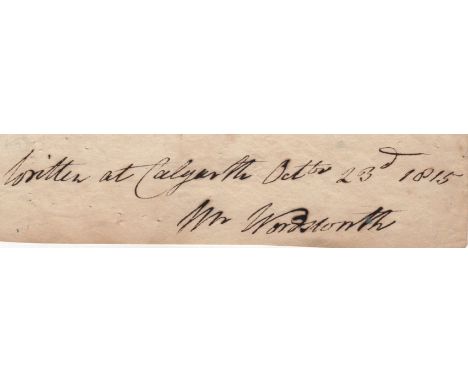 Written at Calgarth Octbr 23d 1815
Wm Wordsworth